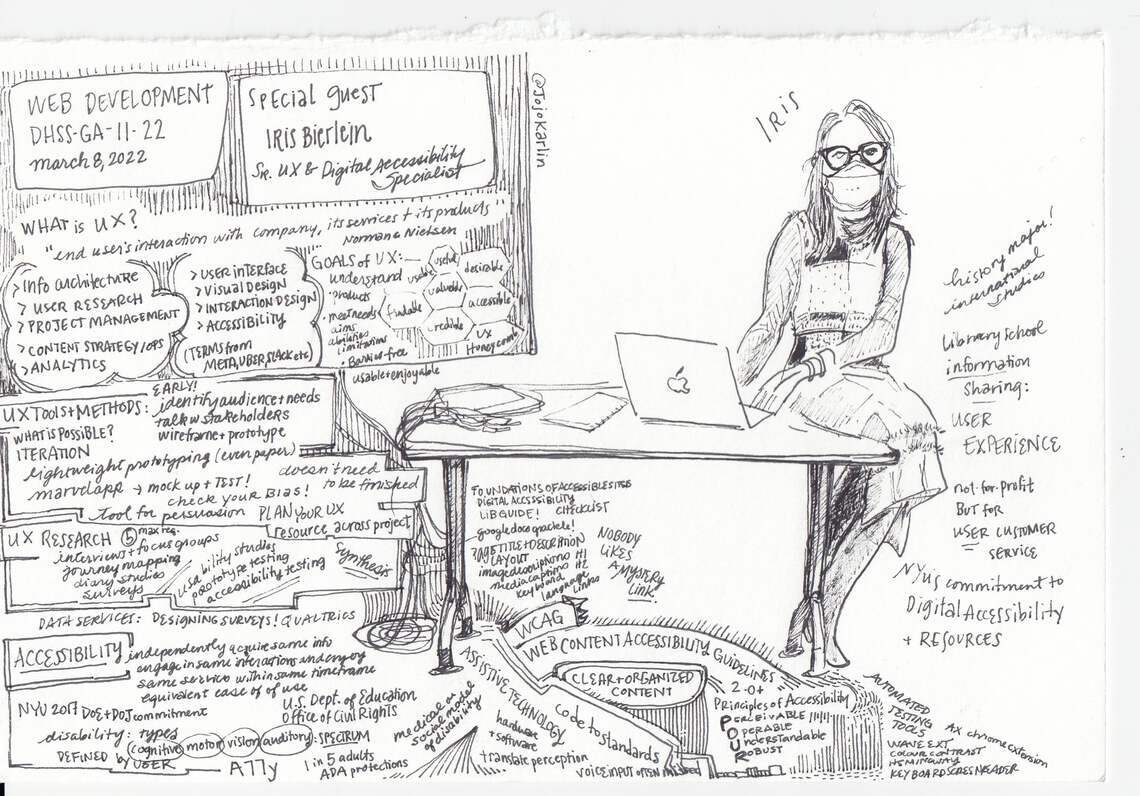 WEB DEVELOPMENT
DHSS-GA-11-22
march 8, 2022
Special guest
IRIS BIerlein
Sr. UX & Digital Accessibility
Specialist
@JojoKarlin
IRIS
WHAT is UX?
"end user's interaction with company, its services + its products"
Norman & Nielsen
> Info architecture
> USER RESEARCH
> PROJECT MANAGEMENT
> CONTENT STRATEGY/OPS
> ANALYTICS
> USER INTERFACE
> VISUAL DESIGN
> INTERACTION DESIGN
> ACCESSIBILITY
(TERMS from
META, UBER, SLACK etc)
GOALS of UX:
understand
• products
• meet needs
aims
abilities
limitations
• Barrier-free
usable + enjoyable
useful
usable
desirable
valuable
findable
accessible
credible
UX
Honeycomb
UX TOOLS + METHODS:
EARLY!
identify audience + needs
talk w stakeholders
wireframe + prototype
WHAT IS POSSIBLE?
ITERATION
lightweight prototyping (even paper)
marvelapp → mock up + TEST!
doesn't need
to be finished
check your BIAS!
tool for persuasion
PLAN your UX
resource across project
UX RESEARCH
5 max req.
interviews + focus groups
journey mapping
diary studies
surveys
usability studies
prototype testing
accessibility testing
Synthesis
DATA SERVICES: DESIGNING SURVEYS! QUALTRICS
ACCESSIBILITY
independently acquire same info
engage in same interactions and enjoy
same services within same timeframe
equivalent ease of of use
NYU 2017 DOE + DOJ commitment
U.S. Dept. of Education
Office of Civil Rights
disability: types
cognitive motor vision auditory: SPECTRUM
DEFINED by USER
A11y
1 in 5 adults
ADA protections
medical or
social model
of disability
FOUNDATIONS OF ACCESSIBLE SITES
DIGITAL ACCESSIBILITY
LIBGUIDE! CHECKLIST
google docs grackle!
PAGE TITLE + DESCRIPTION
LAYOUT
image descriptions H1
media captions H2
keyboard
language
links
NOBODY
LIKES
A MYSTERY
Link!
WCAG
WEB CONTENT ACCESSIBILITY GUIDELINES
2.0+
CLEAR + ORGANIZED
CONTENT
ASSISTIVE TECHNOLOGY
hardware
+ software
translate perception
code to standards
voice input often missed
Principles of Accessibility
PERCEIVABLE
OPERABLE
Understandable
ROBUST
AUTOMATED
TESTING
TOOLS
AX chrome extension
WAVE EXT
COLOUR CONTRAST
HEMINGWAY
KEYBOARD SCREENREADER
history major!
international
studies
Library School
information
sharing:
USER
EXPERIENCE
not-for-profit
BUT for
USER CUSTOMER
SERVICE
NYU's commitment to
Digital Accessibility
+ RESOURCES